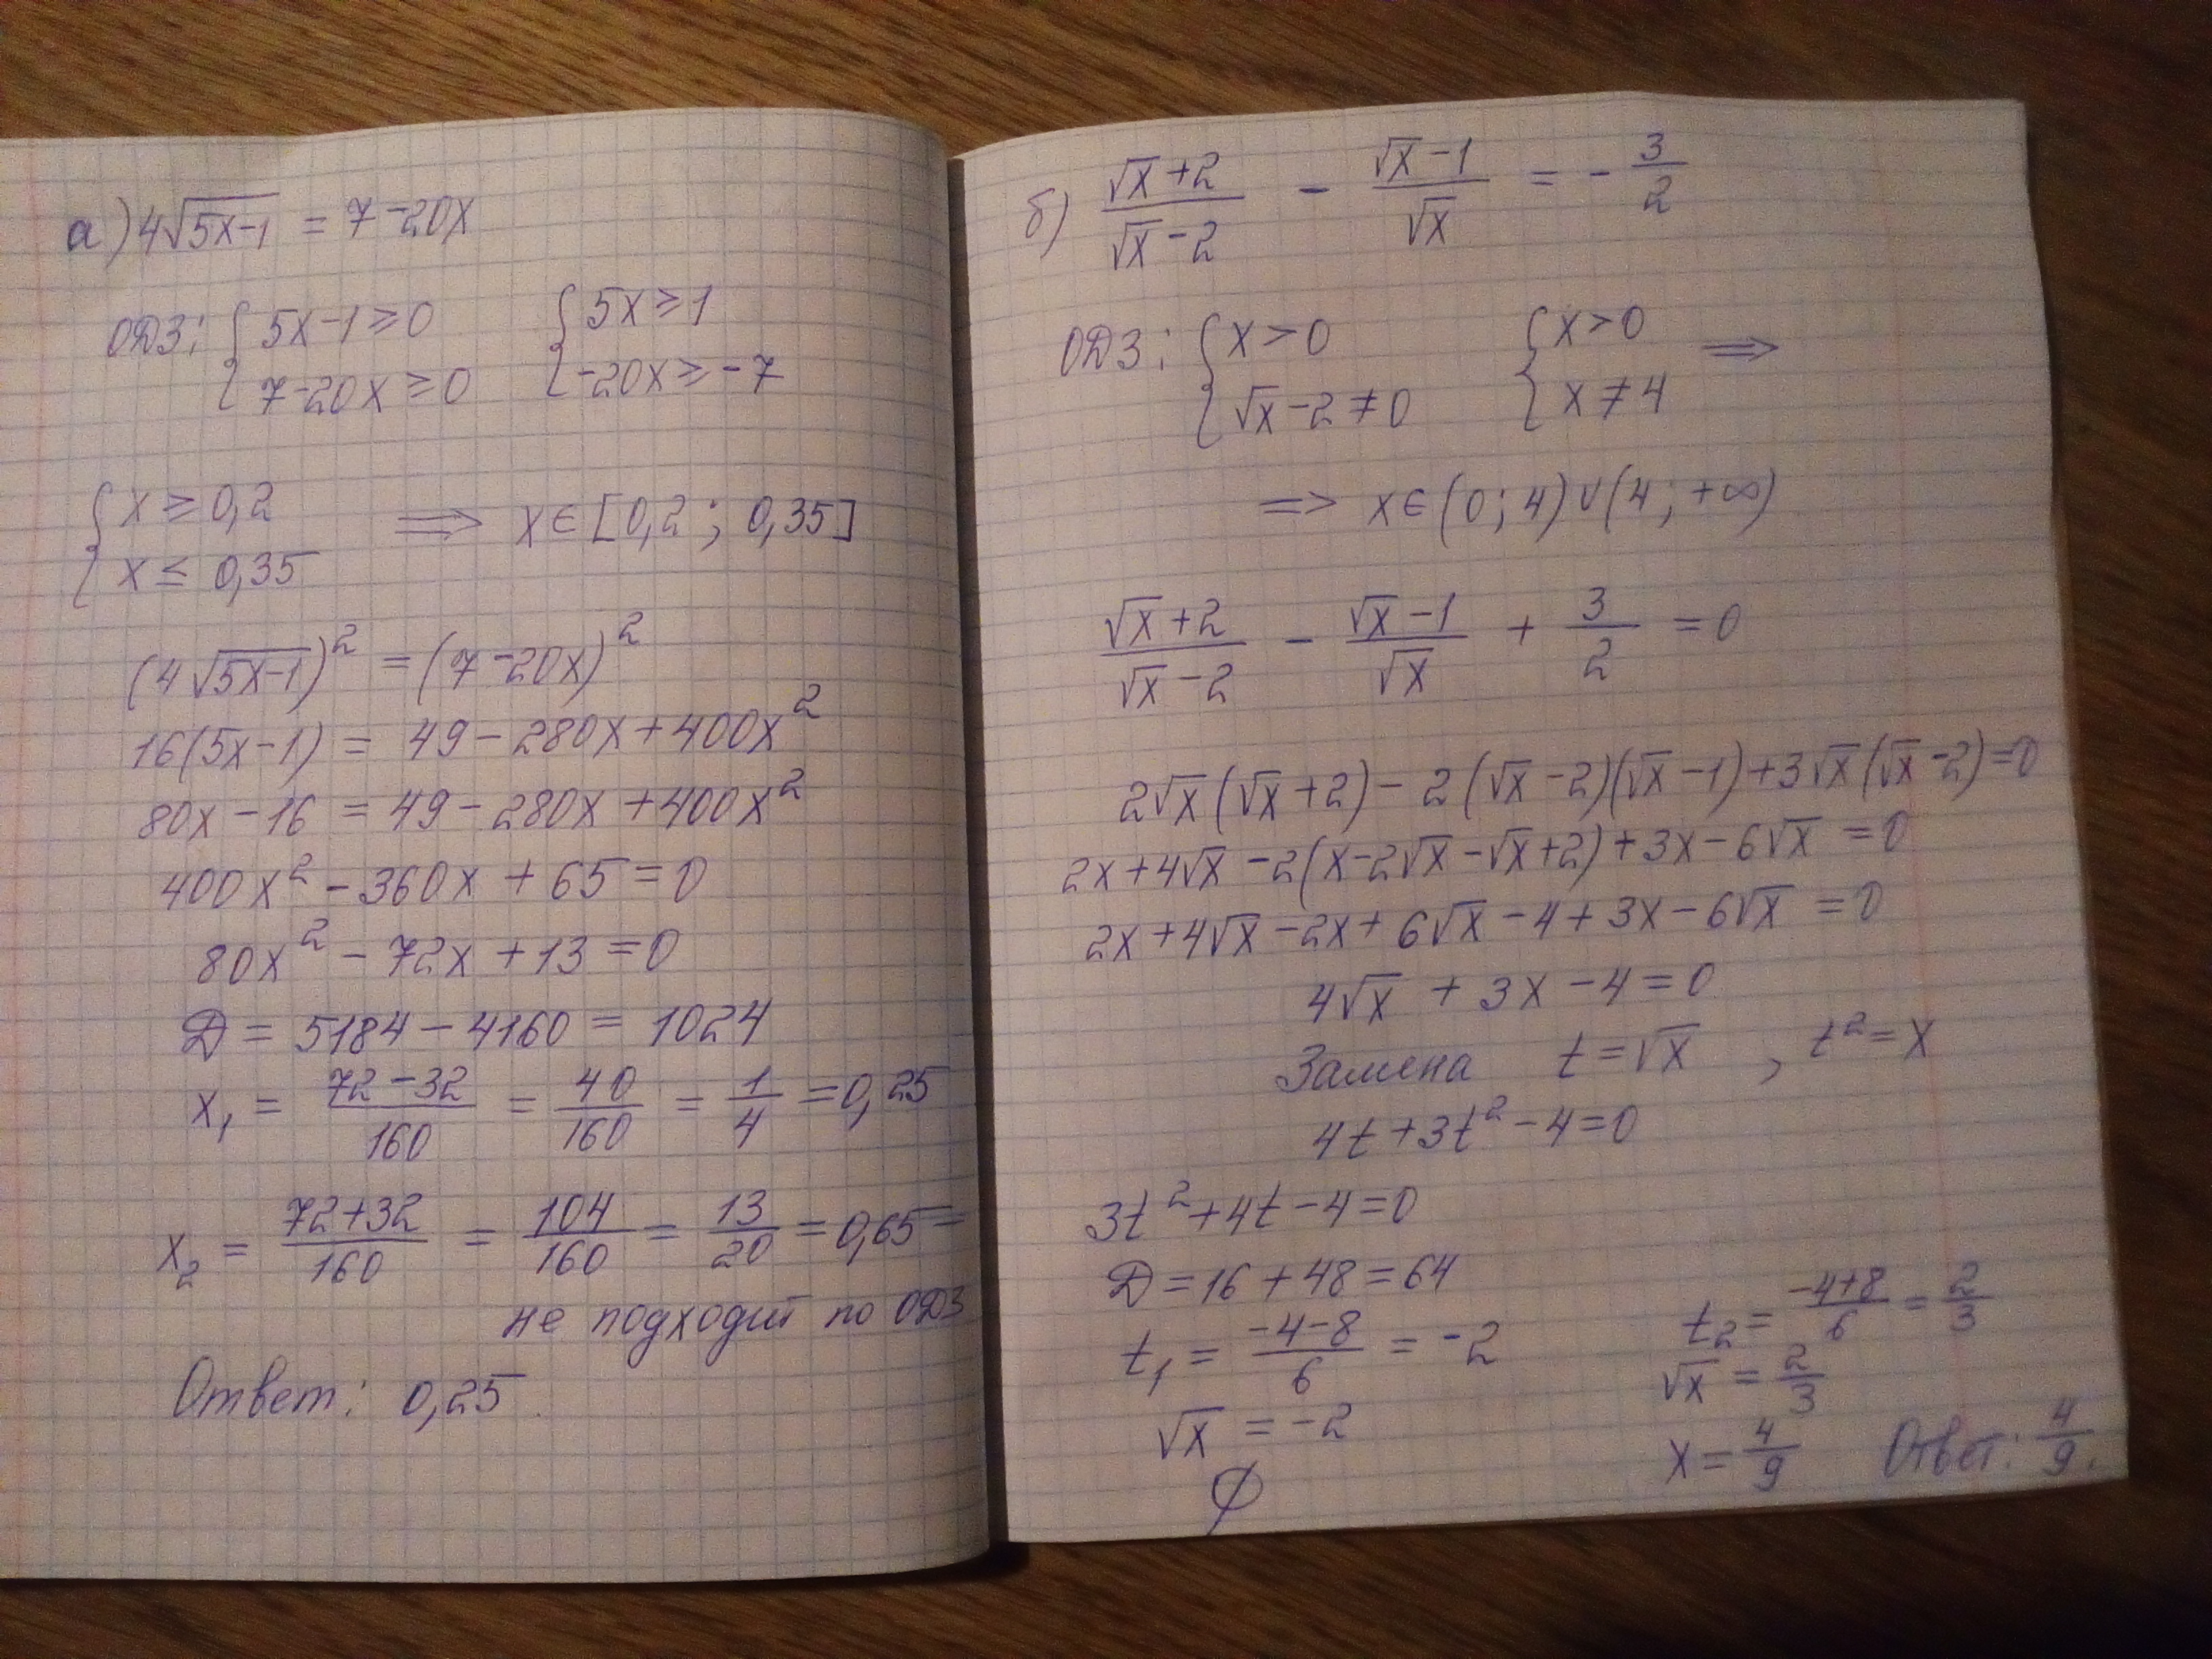 а) 4√(5x-1) = 7-20x
ОДЗ: { 5x-1 ≥ 0 { 5x ≥ 1
7-20x ≥ 0 -20x ≥ -7
{ x ≥ 0,2 ⟹ x ∈ [0,2 ; 0,35]
x ≤ 0,35
(4√(5x-1))² = (7-20x)²
16(5x-1) = 49 - 280x + 400x²
80x - 16 = 49 - 280x + 400x²
400x² - 360x + 65 = 0
80x² - 72x + 13 = 0
D = 5184 - 4160 = 1024
x₁ = (72-32)/160 = 40/160 = 1/4 = 0,25
x₂ = (72+32)/160 = 104/160 = 13/20 = 0,65 =
не подходит по ОДЗ
Ответ: 0,25.
б) (√x+2)/(√x-2) - (√x-1)/√x = - 3/2
ОДЗ: { x > 0 { x > 0 ⟹
√x-2 ≠ 0 x ≠ 4
⟹ x ∈ (0; 4) ∪ (4; +∞)
(√x+2)/(√x-2) - (√x-1)/√x + 3/2 = 0
2√x(√x+2) - 2(√x-2)(√x-1) + 3√x(√x-2) = 0
2x + 4√x - 2(x - 2√x - √x + 2) + 3x - 6√x = 0
2x + 4√x - 2x + 6√x - 4 + 3x - 6√x = 0
4√x + 3x - 4 = 0
Замена t = √x , t² = x
4t + 3t² - 4 = 0
3t² + 4t - 4 = 0
D = 16 + 48 = 64
t₁ = (-4-8)/6 = -2 t₂ = (-4+8)/6 = 2/3
√x = -2 √x = 2/3
∅ x = 4/9 Ответ: 4/9.